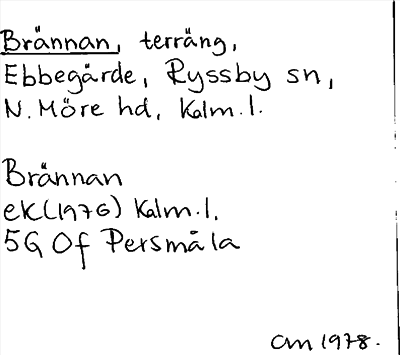 Brännan, terräng,
Ebbegärde, Ryssby sn,
N. Möre hd, Kalm.l.
Brännan
eK(1976) Kalm.l.
5G Of Persmåla
CM 1978.